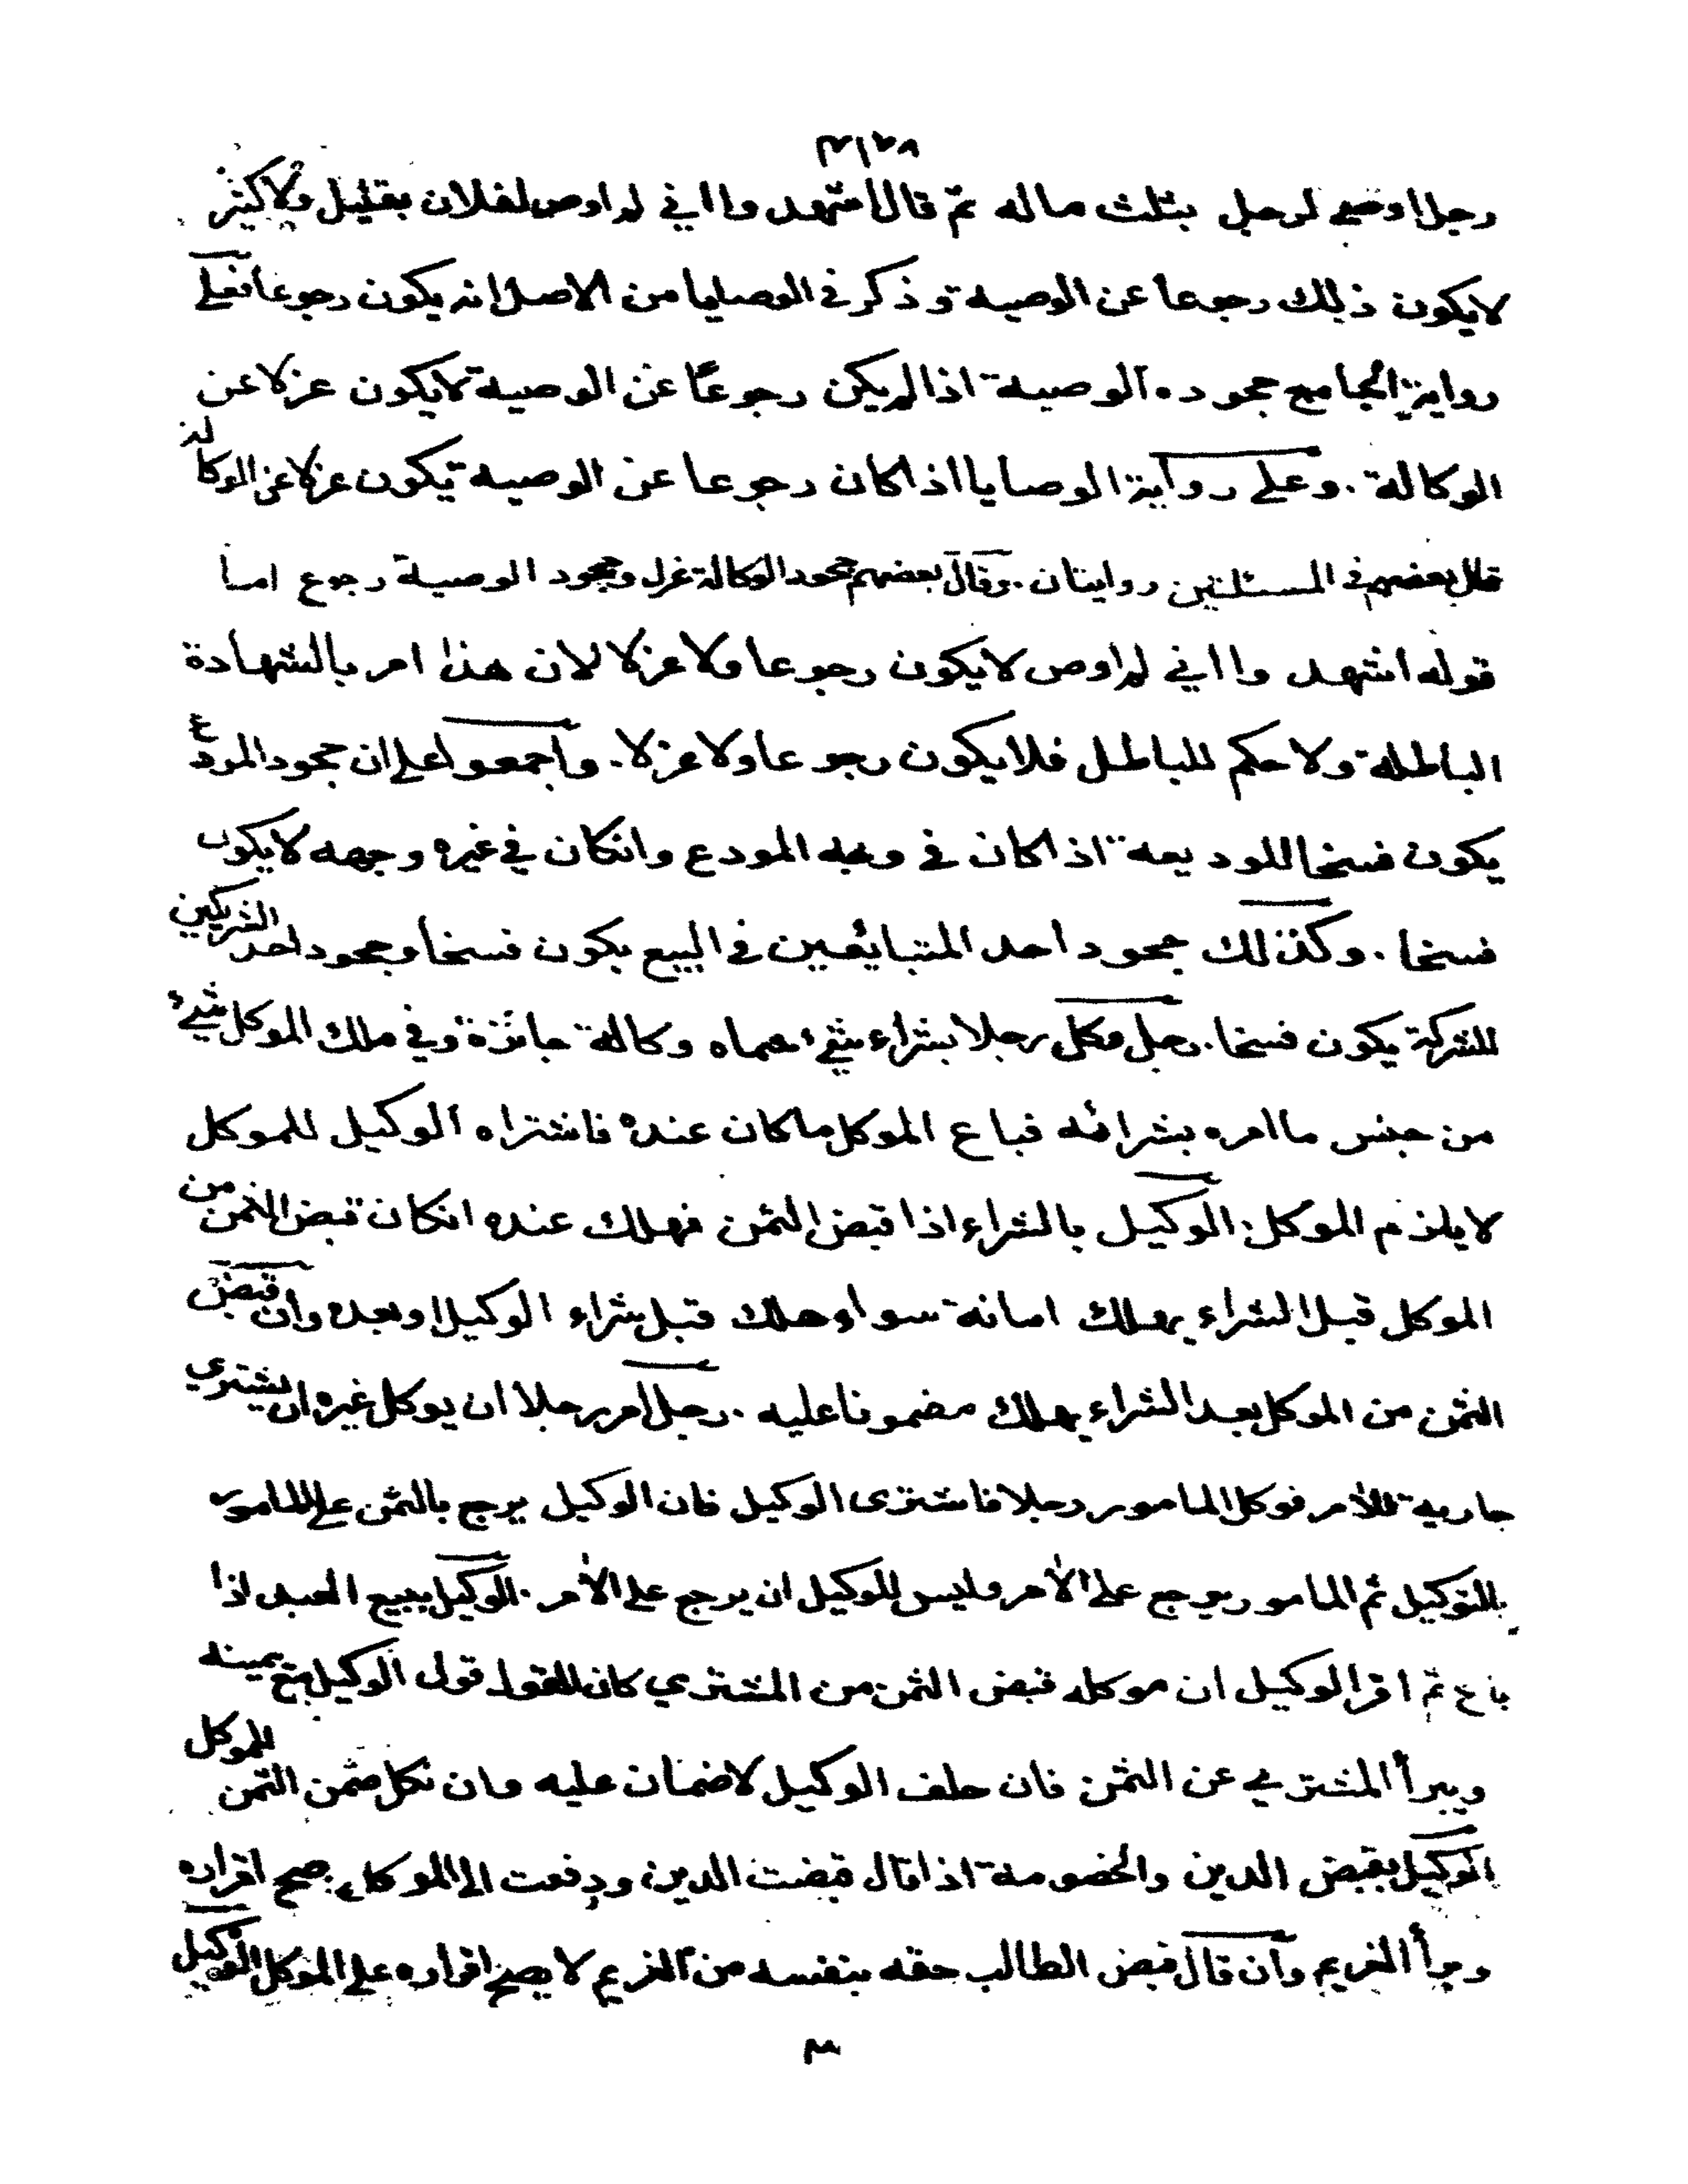 رجل اوصى لرجل بثلث ماله ثم قال اشهدوا اني لم اوص لفلان بقليل ولا كثير
لا يكون ذلك رجوعا عن الوصية وذكر في الوصايا من الاصل انه يكون رجوعا فعلى
رواية الجامع جحوده الوصية اذا لم يكن رجوعا عن الوصية لا يكون عزلا عن
الوكالة . وعلى رواية الوصايا اذا كان رجوعا عن الوصية يكون عزلا عن الوكالة
قال بعضهم في المسئلتين روايتان . وقال بعضهم جحود الوكالة عزل وجحود الوصية رجوع اما
قوله اشهدوا اني لم اوص لا يكون رجوعا ولا عزلا لان هذا امر بالشهادة
الباطلة ولا حكم للباطل فلا يكون رجوعا ولا عزلا . واجمعوا على ان جحود المودع
يكون فسخا للوديعة اذا كان في وجه المودع وانكان في غيره وجهه لا يكون
فسخا . وكذلك جحود احد المتبايعين في البيع يكون فسخا وجحود احد الشريكين
للشركة يكون فسخا . رجل وكل رجلا بشراء شيء سماه وكالة جائزة وفي ملك الموكل شيء
من جنس ما امره بشرائه فباع الموكل ما كان عنده فاشتراه الوكيل للموكل
لا يلزم الموكل . الوكيل بالشراء اذا قبض الثمن فهلك عنده انكان قبض الثمن من
الموكل قبل الشراء يهلك امانة سواء هلك قبل شراء الوكيل او بعده وان قبض
الثمن من الموكل بعد الشراء يهلك مضمونا عليه . رجل امر رجلا ان يوكل غيره ان يشتري
جارية للآمر فوكل المامور رجلا فاشترى الوكيل فان الوكيل يرجع بالثمن على المامور
بالتوكيل ثم المامور يرجع على الآمر وليس للوكيل ان يرجع على الآمر . الوكيل ببيع العبد اذا
باع ثم اقر الوكيل ان موكله قبض الثمن من المشتري كان القول قول الوكيل مع يمينه
ويبرأ المشتري عن الثمن فان حلف الوكيل لا ضمان عليه وان نكل ضمن الثمن للموكل
الوكيل بقبض الدين والخصومة اذا قال قبضت الدين ودفعت الى الموكل صح اقراره
وبرأ الغريم وان قال قبض الطالب حقه بنفسه من الغريم لا يصح اقراره على الموكل الوكيل